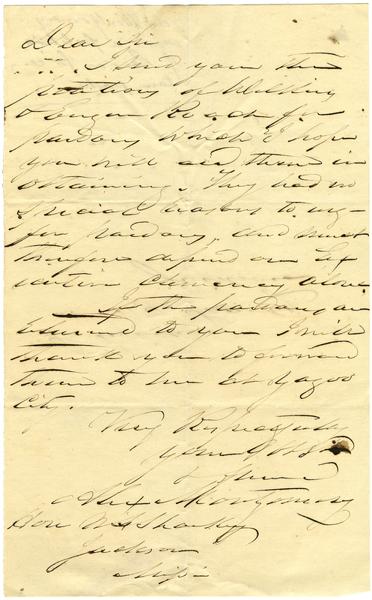 Dear Sir
I send you the
petitions of Wilkins
& Eugene Roach for
pardons which I hope
you will aid them in
obtaining. They had no
special reasons to urge
for pardons, and must
therefore depend on Ex
ecutive clemency alone.
If the pardons are
returned to you I will
thank you to forward
them to me at Yazoo
City.
Very Respectfully
your Obt
Alex Montgomery
Hon W L Sharkey
Jackson
Missi